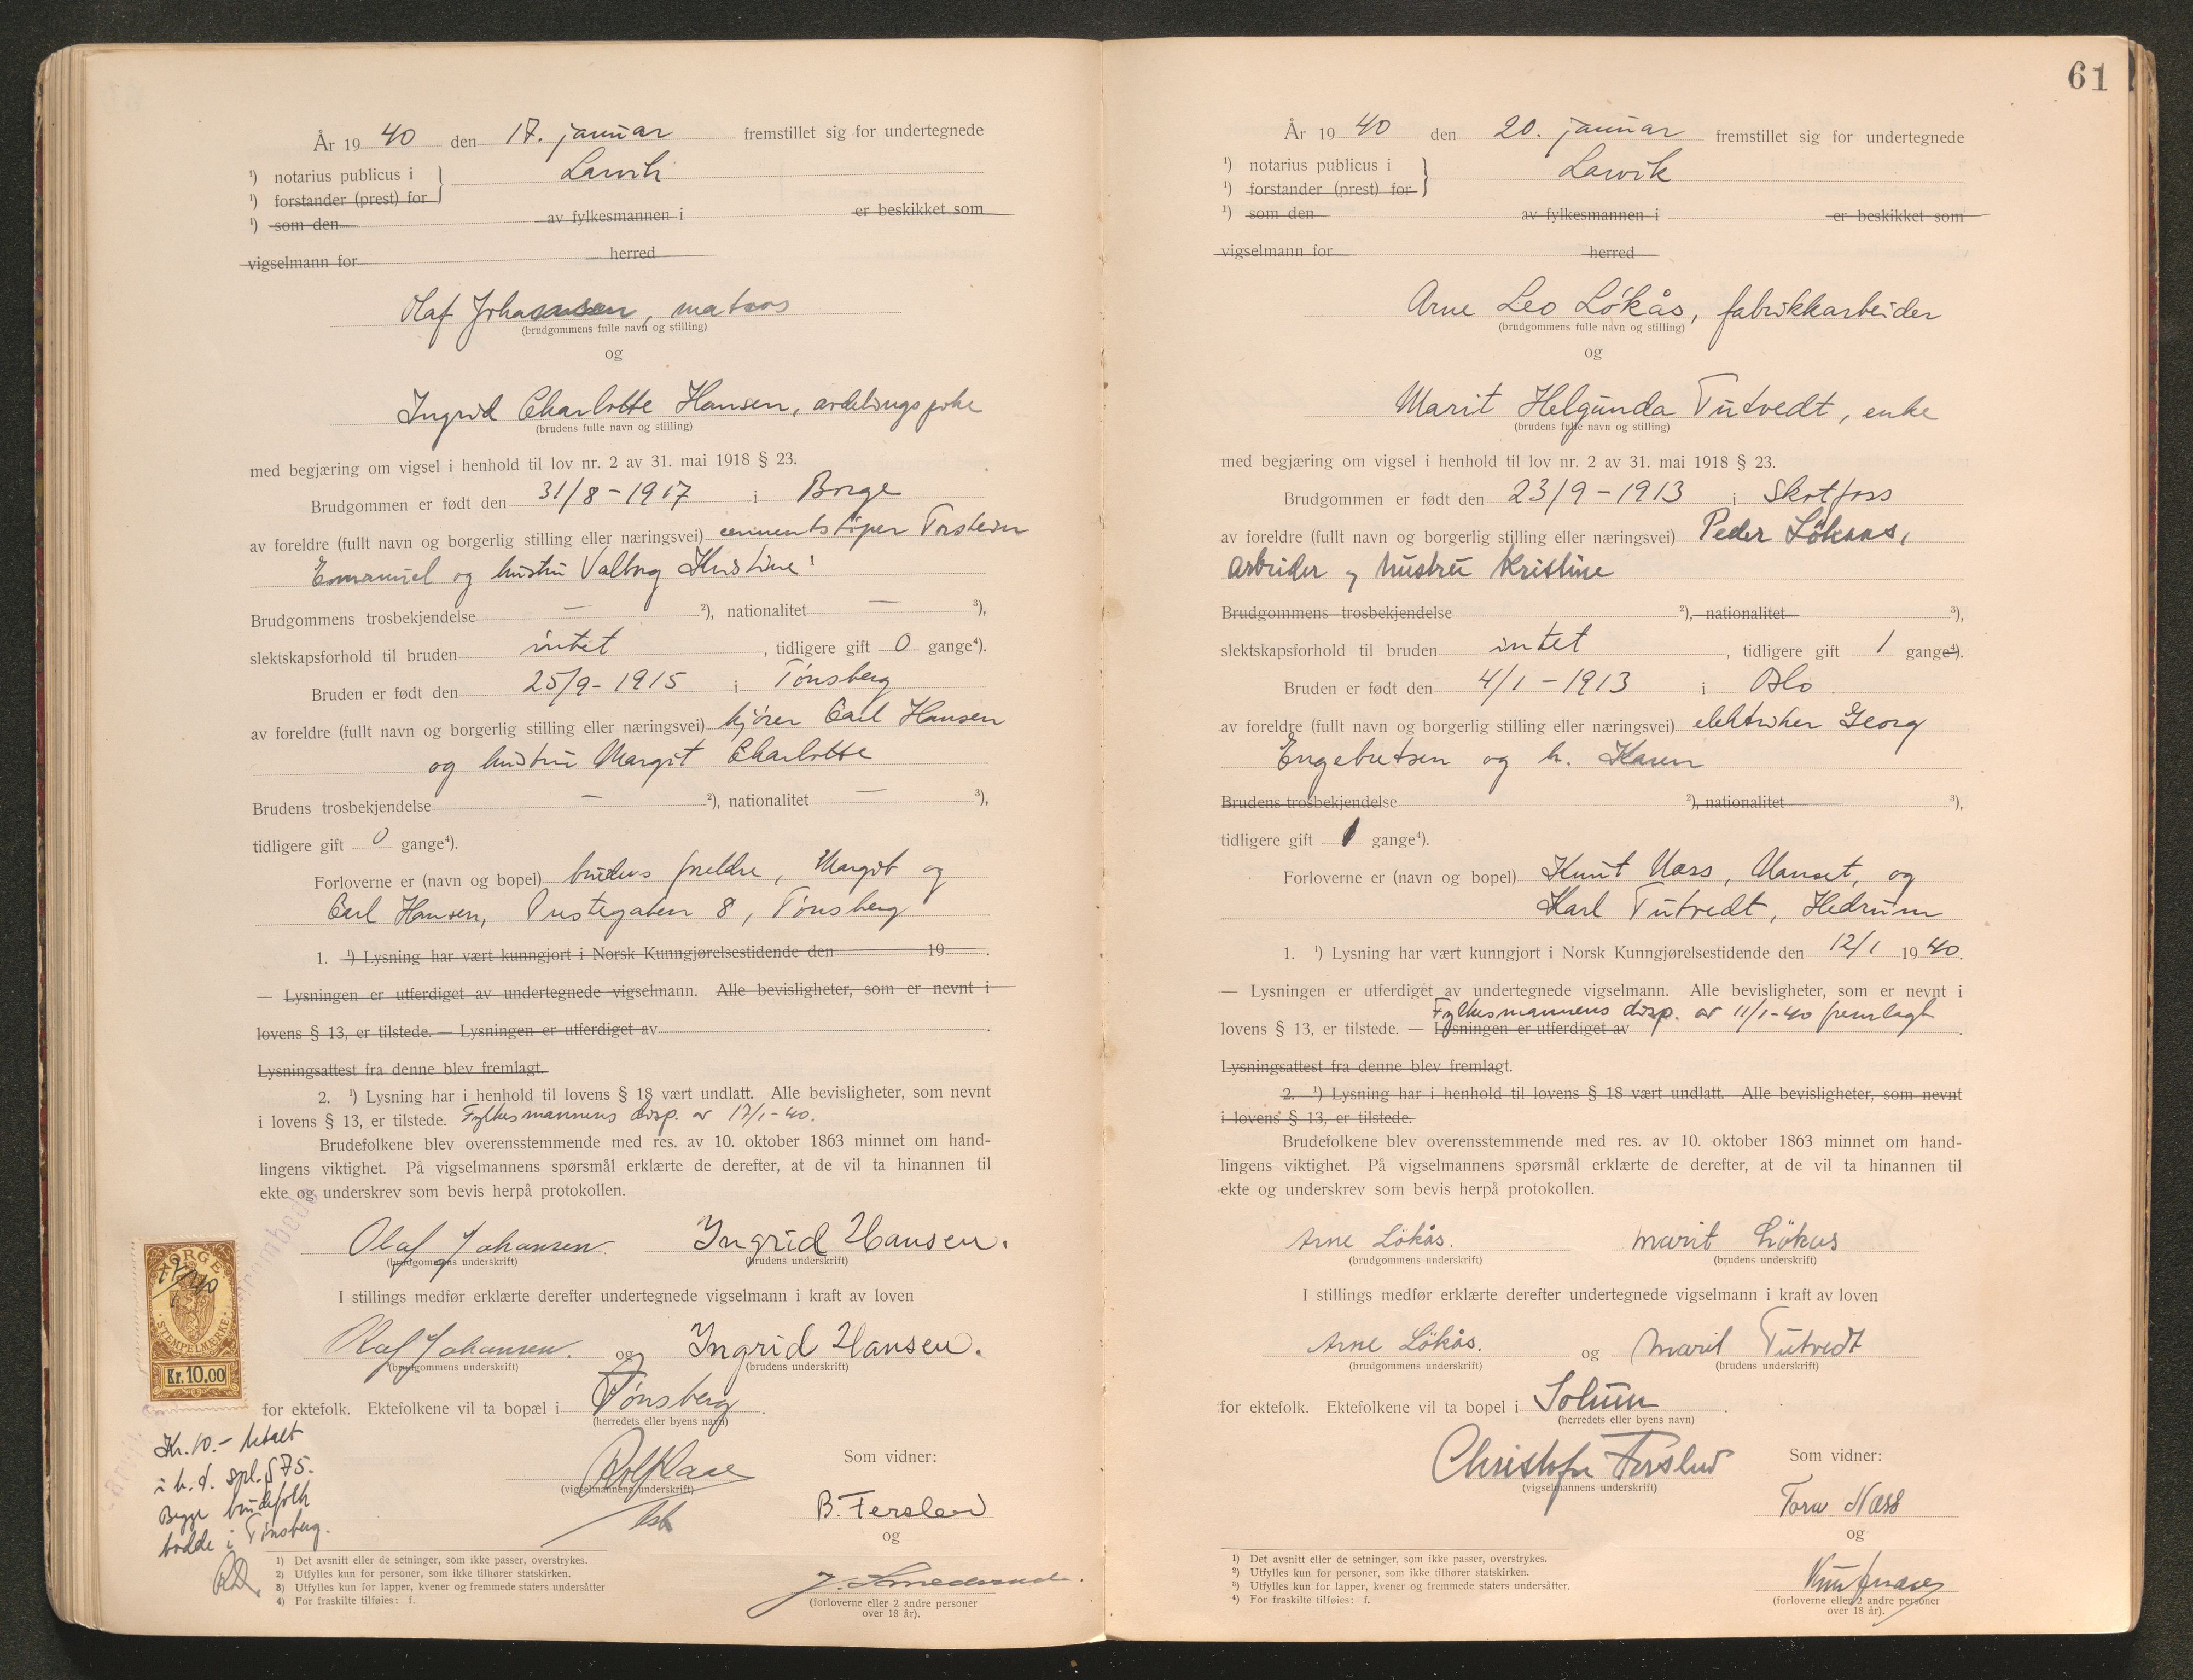 År 19 40 den 17. januar fremstillet sig for undertegnede
¹) notarius publicus i } Larvik
¹) forstander (prest) for
¹) som den av fylkesmannen i er beskikket som
vigselmann for herred
Olaf Johansen, matros
(brudgommens fulle navn og stilling)
og
Ingrid Charlotte Hansen, avdelingspike
(brudens fulle navn og stilling)
med begjæring om vigsel i henhold til lov nr. 2 av 31. mai 1918 § 23.
Brudgommen er født den 31/8-1917 i Borge
av foreldre (fullt navn og borgerlig stilling eller næringsvei) cementstøper Torstein
Emanuel og hustru Valborg Kristine
Brudgommens trosbekjendelse — ²), nationalitet — ³),
slektskapsforhold til bruden intet, tidligere gift 0 gange⁴).
Bruden er født den 25/9-1915 i Tönsberg
av foreldre (fullt navn og borgerlig stilling eller næringsvei) kjörer Carl Hansen
og hustru Margit Charlotte
Brudens trosbekjendelse — ²), nationalitet — ³),
tidligere gift 0 gange⁴).
Forloverne er (navn og bopel) brudens foreldre, Margit og
Carl Hansen, Prestegaten 8, Tönsberg
1. ¹) Lysning har vært kunngjort i Norsk Kunngjørelsestidende den 19 .
— Lysningen er utferdiget av undertegnede vigselmann. Alle bevisligheter, som er nevnt i
lovens § 13, er tilstede. — Lysningen er utferdiget av .
Lysningsattest fra denne blev fremlagt.
2. ¹) Lysning har i henhold til lovens § 18 vært undlatt. Alle bevisligheter, som nevnt
i lovens § 13, er tilstede. Fylkesmannens disp. av 17/1-40.
Brudefolkene blev overensstemmende med res. av 10. oktober 1863 minnet om hand-
lingens viktighet. På vigselmannens spørsmål erklærte de derefter, at de vil ta hinannen til
ekte og underskrev som bevis herpå protokollen.
Olaf Johansen. Ingrid Hansen.
(brudgommens underskrift) (brudens underskrift)
I stillings medfør erklærte derefter undertegnede vigselmann i kraft av loven
Olaf Johansen. og Ingrid Hansen.
(brudgommens underskrift) (brudens underskrift)
for ektefolk. Ektefolkene vil ta bopæl i Tönsberg.
(herredets eller byens navn)
NORGE
17/1 40
STEMPELMERKE
Kr. 10.00
Kr. 10.- betalt
i h. t. spl. § 75.
Begge brudefolk
bodde i Tönsberg.
(vigselmannens underskrift)
Som vidner:
B. Ferslew
og
J. Smedsrud.
(forloverne eller 2 andre personer
over 18 år).
1) Det avsnitt eller de setninger, som ikke passer, overstrykes.
2) Utfylles kun for personer, som ikke tilhører statskirken.
3) Utfylles kun for lapper, kvener og fremmede staters undersåtter
4) For fraskilte tilføies: f.
61
År 19 40 den 20. januar fremstillet sig for undertegnede
¹) notarius publicus i } Larvik
¹) forstander (prest) for
¹) som den av fylkesmannen i er beskikket som
vigselmann for herred
Arne Leo Lökås, fabrikkarbeider
(brudgommens fulle navn og stilling)
og
Marit Helgunda Tutvedt, enke
(brudens fulle navn og stilling)
med begjæring om vigsel i henhold til lov nr. 2 av 31. mai 1918 § 23.
Brudgommen er født den 23/9-1913 i Skotfoss
av foreldre (fullt navn og borgerlig stilling eller næringsvei) Peder Lökaas,
arbeider og hustru Kristine
Brudgommens trosbekjendelse ²), nationalitet ³),
slektskapsforhold til bruden intet, tidligere gift 1 gange⁴).
Bruden er født den 4/1-1913 i Oslo
av foreldre (fullt navn og borgerlig stilling eller næringsvei) elektriker Georg
Engebretsen og h. Karen
Brudens trosbekjendelse ²), nationalitet ³),
tidligere gift 1 gange⁴).
Forloverne er (navn og bopel) Knut Næss, Nanset, og
Karl Tutvedt, Hedrum
1. ¹) Lysning har vært kunngjort i Norsk Kunngjørelsestidende den 12/1 19 40.
— Lysningen er utferdiget av undertegnede vigselmann. Alle bevisligheter, som er nevnt i
Fylkesmannens disp. av 11/1-40 fremlagt
lovens § 13, er tilstede. — Lysningen er utferdiget av .
Lysningsattest fra denne blev fremlagt.
2. ¹) Lysning har i henhold til lovens § 18 vært undlatt. Alle bevisligheter, som nevnt
i lovens § 13, er tilstede.
Brudefolkene blev overensstemmende med res. av 10. oktober 1863 minnet om hand-
lingens viktighet. På vigselmannens spørsmål erklærte de derefter, at de vil ta hinannen til
ekte og underskrev som bevis herpå protokollen.
Arne Lökås. Marit Lökås
(brudgommens underskrift) (brudens underskrift)
I stillings medfør erklærte derefter undertegnede vigselmann i kraft av loven
Arne Lökås. og Marit Tutvedt
(brudgommens underskrift) (brudens underskrift)
for ektefolk. Ektefolkene vil ta bopel i Solum.
(herredets eller byens navn)
Christofer Ferslew
(vigselmannens underskrift)
Som vidner:
Næss
og
Knut Næss
(forloverne eller 2 andre personer
over 18 år).
1) Det avsnitt eller de setninger, som ikke passer, overstrykes.
2) Utfylles kun for personer, som ikke tilhører statskirken.
3) Utfylles kun for lapper, kvener og fremmede staters undersåtter.
4) For fraskilte tilføies: f.